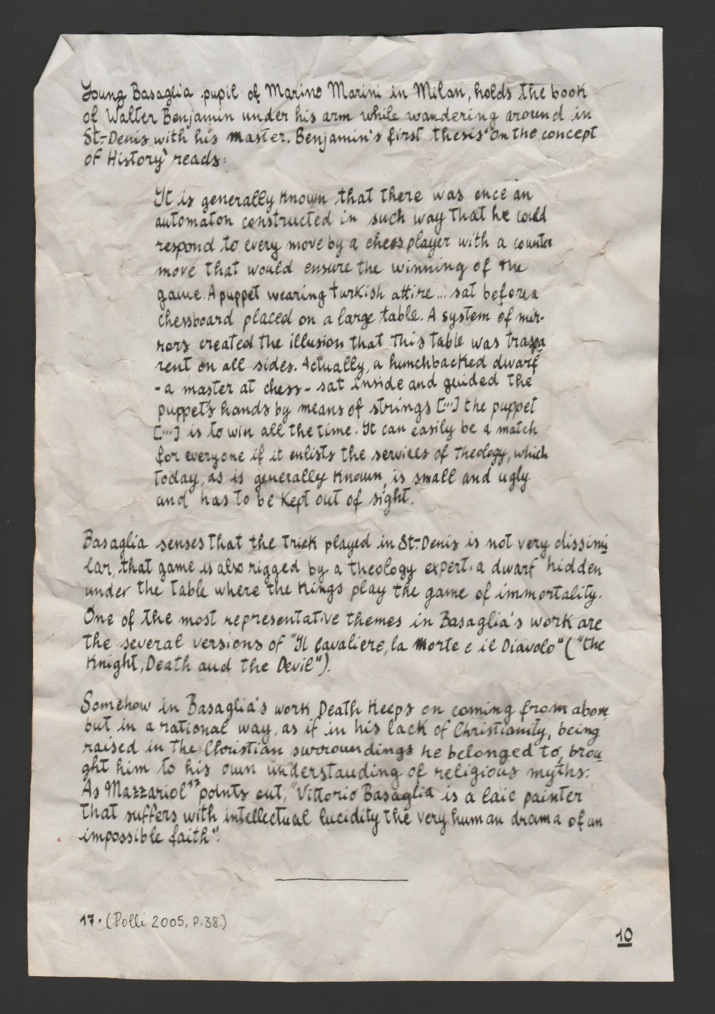 Young Basaglia pupil of Marino Marini in Milan, holds the book
of Walter Benjamin under his arm while wandering around in
St-Denis with his master. Benjamin's first thesis "On the concept
of History" reads:
It is generally known that there was once an
automaton constructed in such way that he could
respond to every move by a chess player with a counter
move that would ensure the winning of the
game. A puppet wearing turkish attire ... sat before a
chessboard placed on a large table. A system of mir-
rors created the illusion that this table was traspa
rent on all sides. Actually, a hunchbacked dwarf
- a master at chess - sat inside and guided the
puppet's hands by means of strings [...] the puppet
[...] is to win all the time. It can easily be a match
for everyone if it enlists the services of Theology, which
today, as is generally known, is small and ugly
and has to be kept out of sight.
Basaglia senses that the trick played in St-Denis is not very dissimi
lar, that game is also rigged by a theology expert: a dwarf hidden
under the table where the Kings play the game of immortality.
One of the most representative themes in Basaglia's work are
the several versions of "Il cavaliere, la Morte e il Diavolo" ("the
Knight, Death and the Devil").
Somehow in Basaglia's work Death keeps on coming from above
but in a rational way, as if in his lack of Christianity, being
raised in the Christian surroundings he belonged to, brou
ght him to his own understanding of religious myths.
As Mazzariol 17 points out, "Vittorio Basaglia is a laic painter
that suffers with intellectual lucidity the very human drama of an
impossible faith".
17. (Polli 2005, p.38.)
10